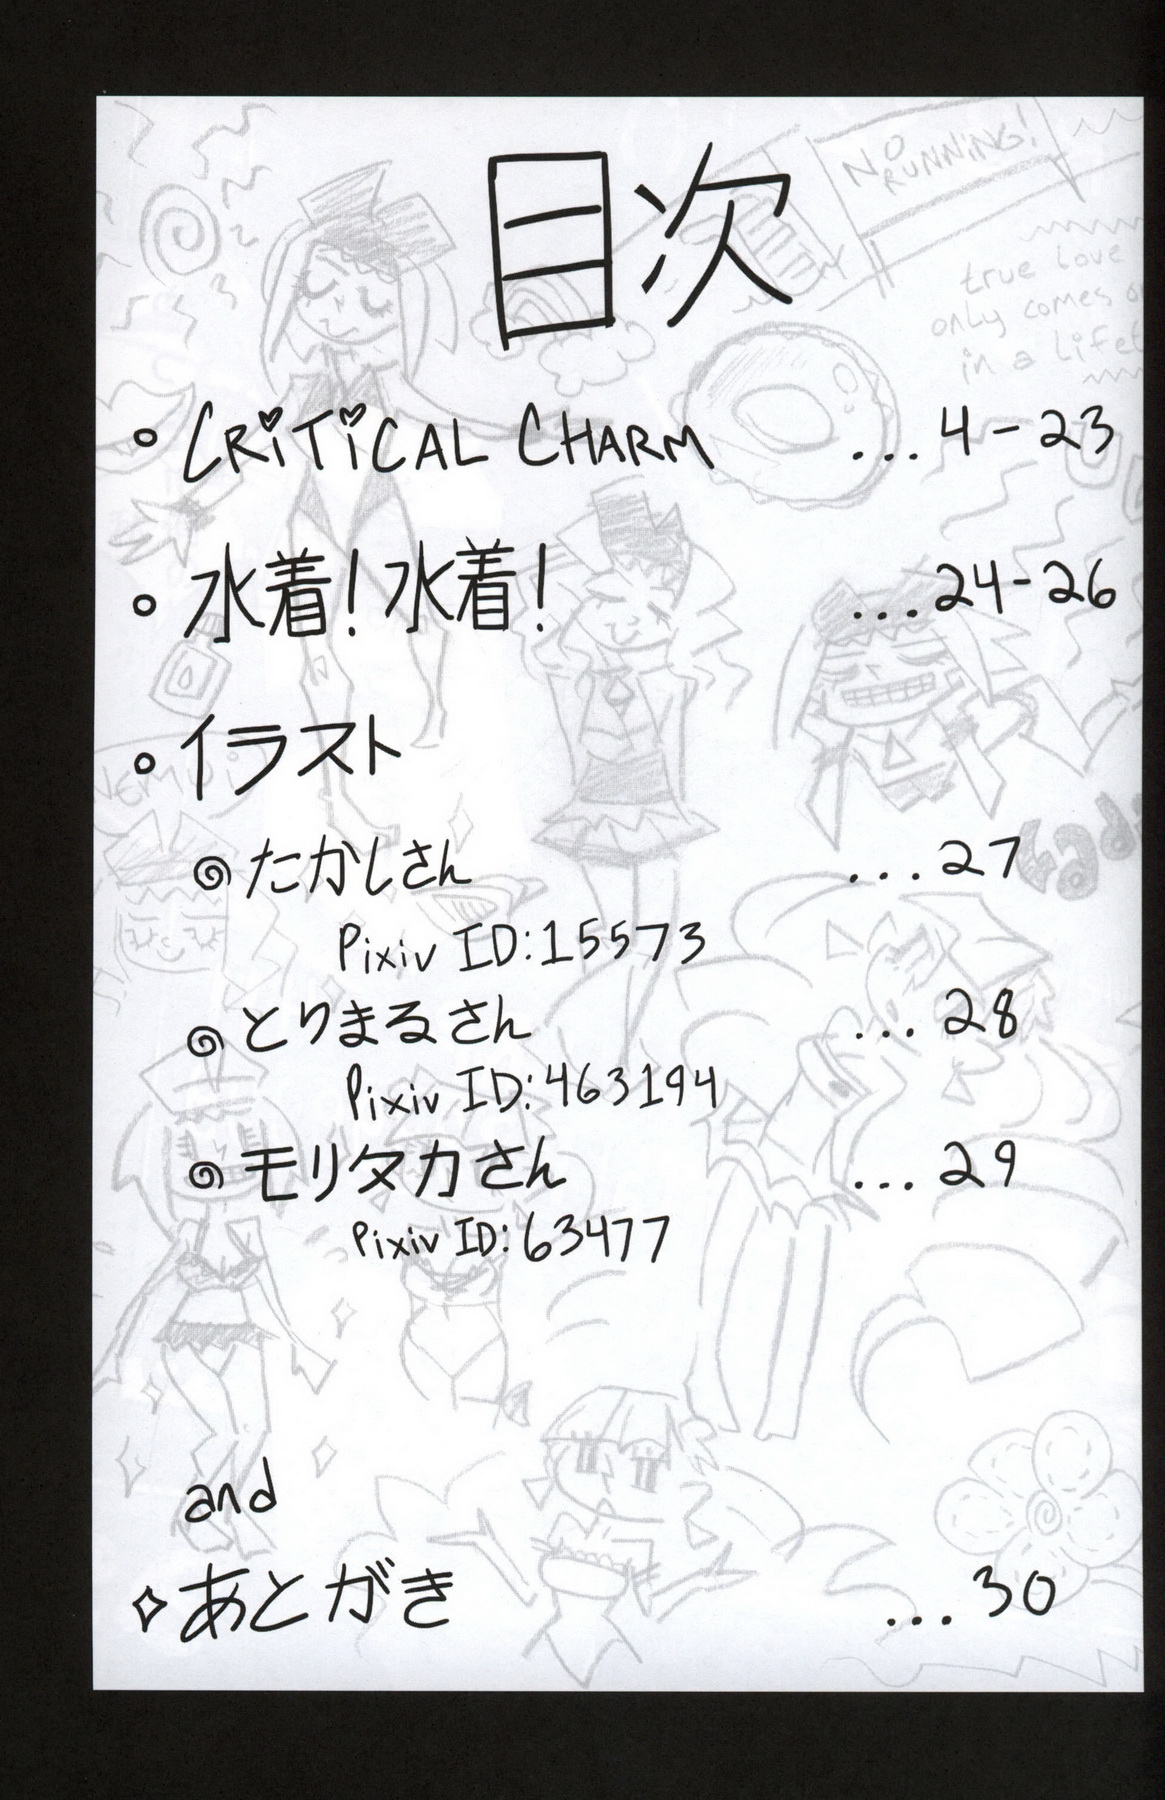 目次
NO RUNNING!
true love
only comes
in a
。CRITICAL CHARM ...4-23
。水着!水着! ...24-26
。イラスト
たかしさん ...27
Pixiv ID:15573
とりまるさん ...28
Pixiv ID:463194
モリタカさん ...29
Pixiv ID:63477
and
あとがき ...30